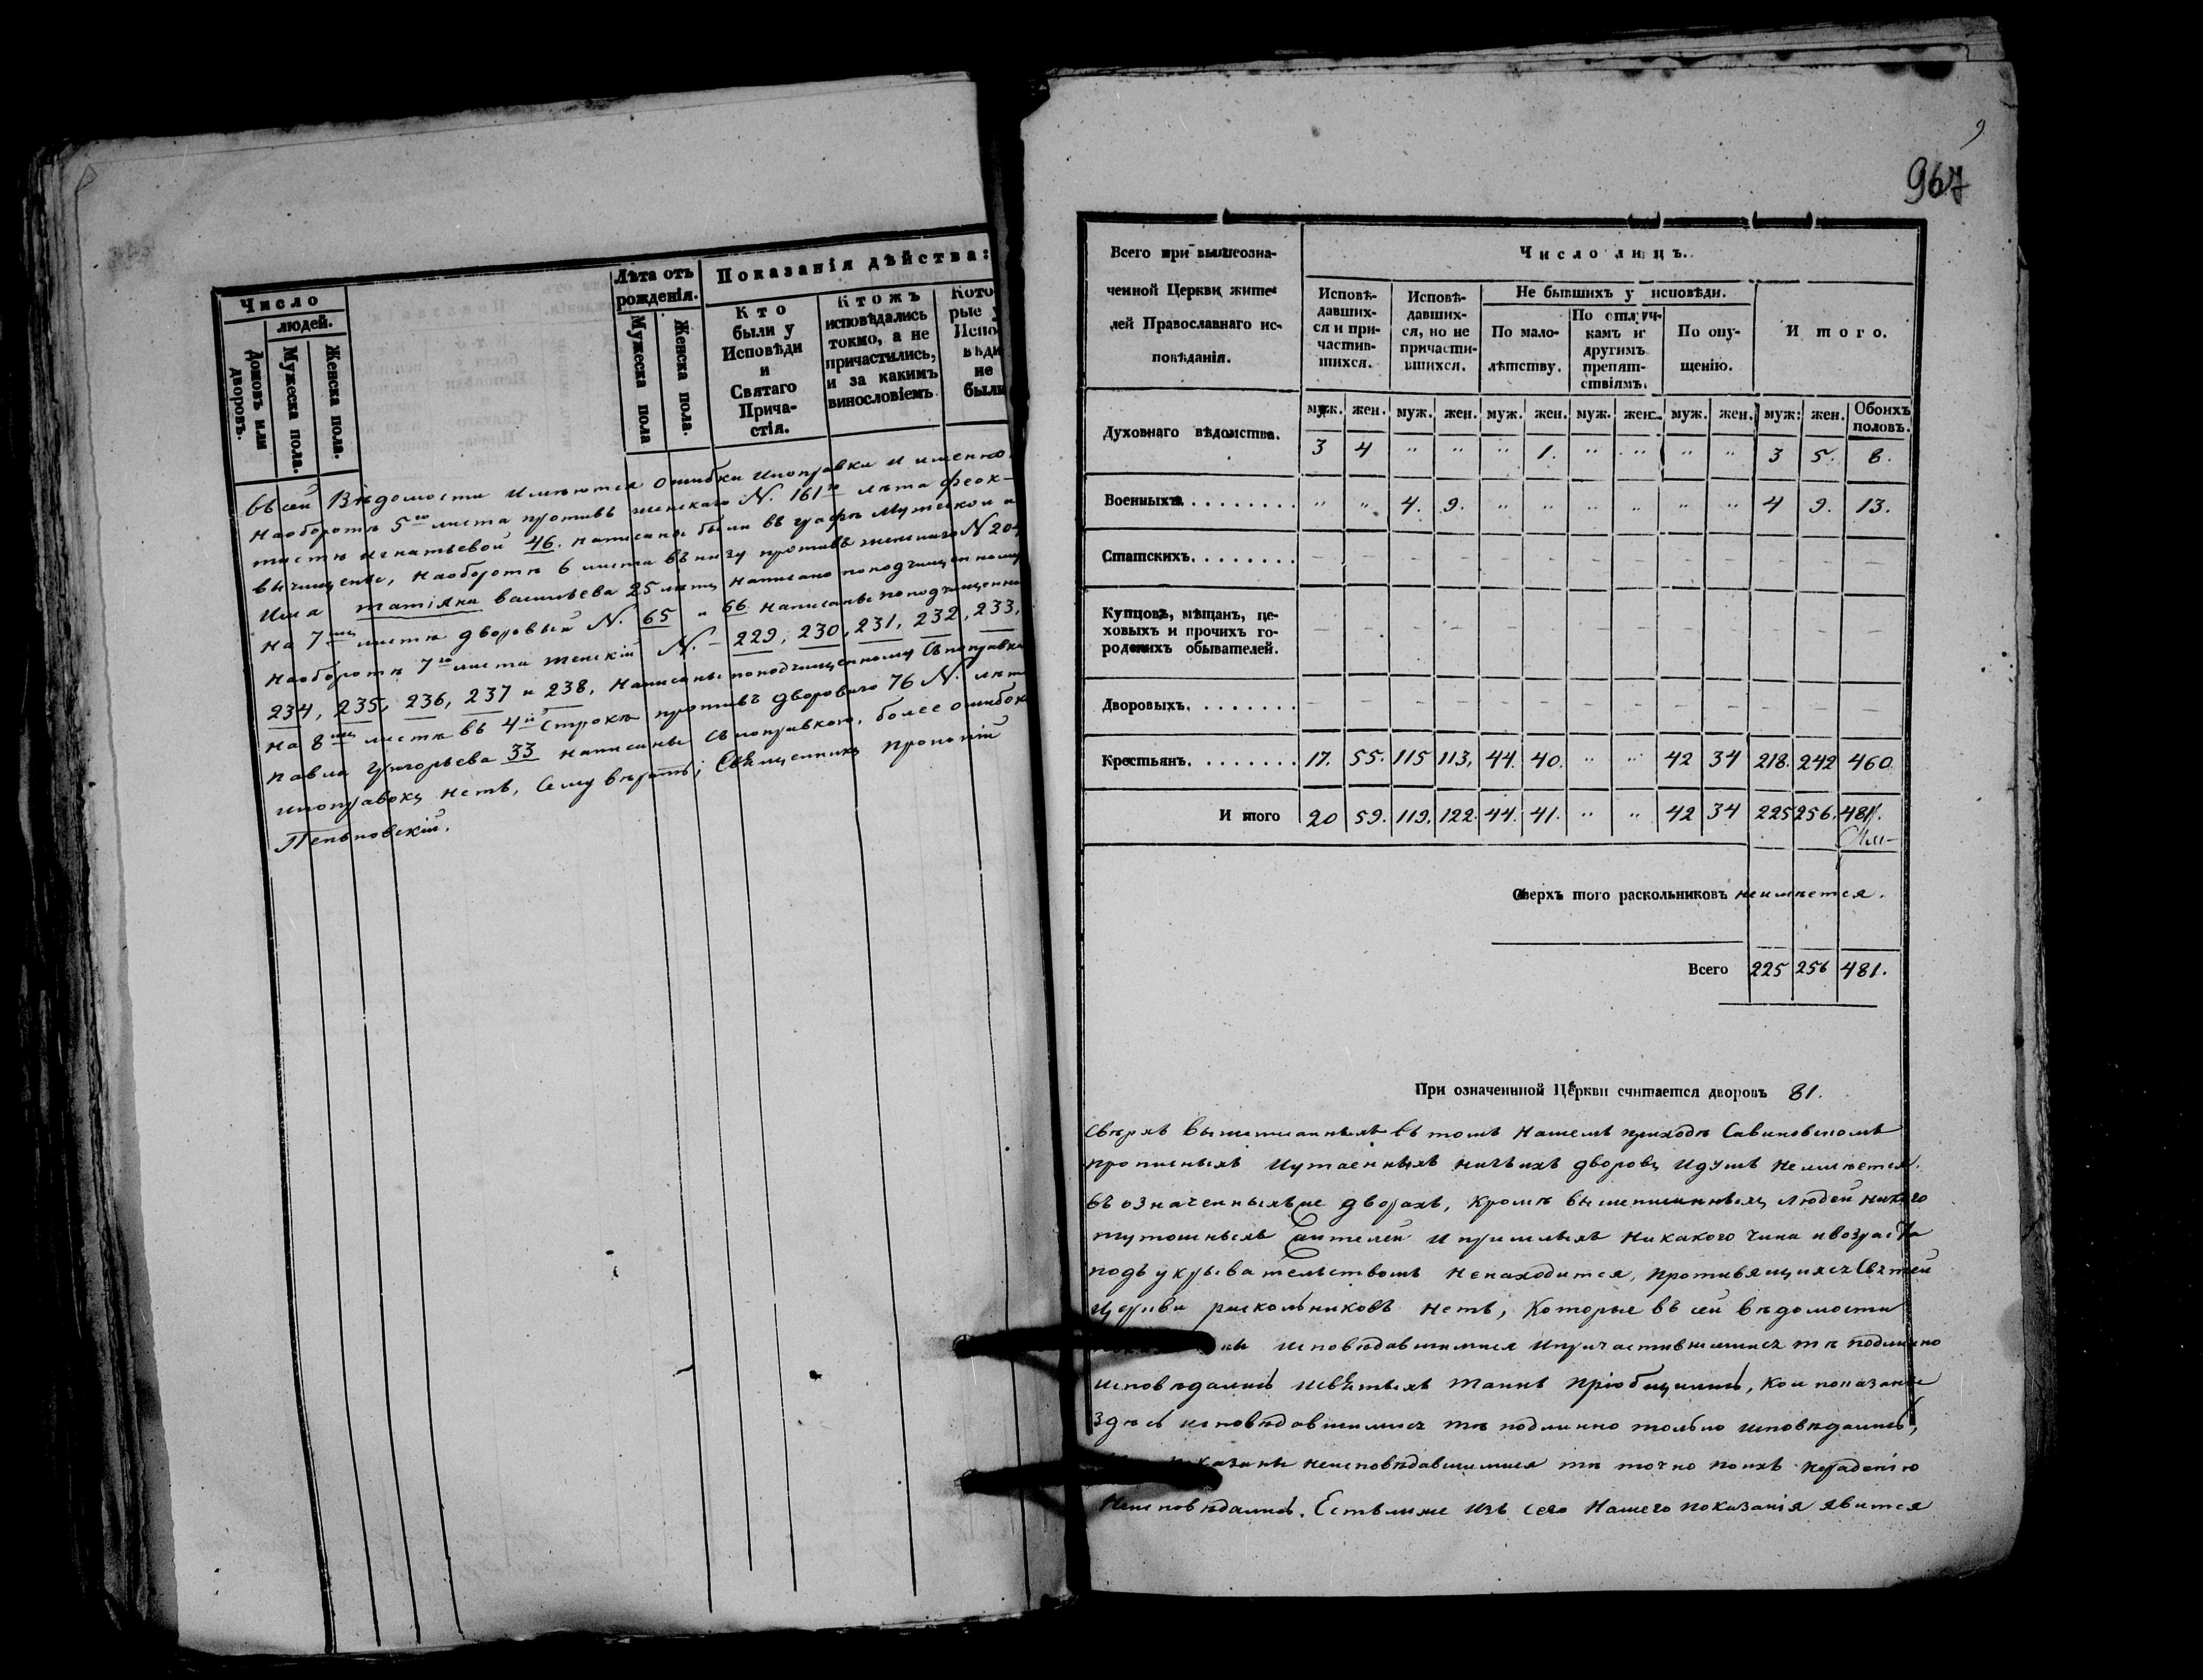 Число
людей.
Домовъ или дворовъ.
Мужеска пола.
Женска пола.
Лѣта отъ
рожденія.
Мужеска пола
Женска пола.
Показанія дѣйства:
Кто
были у
Исповѣди
и
Святаго
Прича-
стія.
Ктожъ
исповѣдались
токмо, а не
причастились,
и за какимъ
винословіемъ
Кото
рые у
Испо-
вѣди
не
были
Въ сей Вѣдомости имѣются ошибки ипоправки и именно.
Наоборотѣ 5го листа противъ женскаго N. 161го лѣта Феок-
тистѣ Игнатьевой 46. написаны были въ графѣ Мужской и
вычищены, наоборотѣ 6 листа въ низу противъ женскаго N 204
Имя татіяна васильева 25 лѣтъ написано поподчищенному
На 7мъ листѣ дворовый N. 65 и 66 написаны поподчищенно
Наоборотѣ 7го листа женскій N. 229, 230, 231, 232, 233,
234, 235, 236, 237 и 238, написаны поподчищенному съ поправко
на 8мъ листѣ въ 4й строкѣ противъ двороваго 76 N. лѣт
павла григорьева 33 написаны съ поправкою. более ошибок
ипоправокъ нетъ, Сему вѣрить; Священникъ Прокопій
967
9
Всего при вышеозна-
ченной Церкви жите-
лей Православнаго ис-
повѣданія.
Число лицъ.
Исповѣ-
давших-
ся и при-
частив-
шихся.
Исповѣ-
давших-
ся, но не
причасти-
вшихся.
Не бывшихъ у исповѣди.
По мало-
лѣтству.
По отлуч-
камъ и
другимъ
препят-
ствіямъ.
По опу-
щенію.
Итого.
муж. жен. муж. жен. муж. жен. муж. жен. муж. жен. муж: жен. Обоихъ половъ.
Духовнаго вѣдомства. 3 4 " " " 1. " " " " 3 5. 8.
Военныхъ. " " 4. 9. " " " " " " 4 9. 13.
Статскихъ. – – – – – – – – – – – – –
Купцовъ, мѣщанъ, це-
ховыхъ и прочихъ го-
родскихъ обывателей. – – – – – – – – – – – – –
Дворовыхъ. – – – – – – – – – – – – –
Крестьянъ. 17. 55. 115 113. 44. 40. " " 42 34 218. 242 460
И того 20 59. 119. 122. 44. 41. " " 42 34 225 256. 481.
Сверхъ того раскольниковъ неимѣется.
Всего 225 256 481.
При означенниой Церкви считается дворовъ 81.
Свѣрхъ вышеписанныхъ въ томъ нашемъ приходѣ Савиновскомъ
прописныхъ иутаенныхъ ничьихъ дворовъ идушъ неимѣется.
въ означенныхъже дворахъ, кромѣ вышеписанныхъ людей никого
тутошныхъ жителей ипришлыхъ никакого чина ивозраста
подъ укрывательствомъ ненаходится, противящихся Святей
церкви раскольниковъ нетъ, Которые въ сей вѣдомости
исповѣдавшимися ипричастившимися тѣ подлинно
исповѣдались исвятыхъ таинъ пріобщились, кои показаны
здѣсь исповѣдавшимися тѣ подлинно только исповѣдались,
показаны неисповѣдавшимися тѣ точно поихъ нерадѣнію
Неисповѣдались. Естьлиже изъ сего Нашего показанія явится